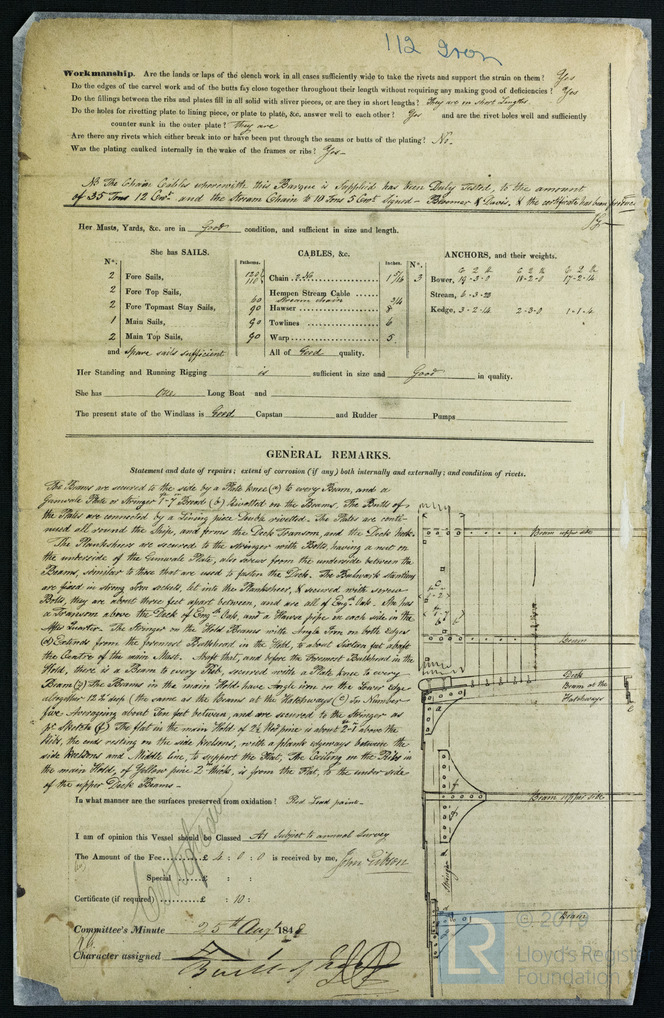 112 Iron
Workmanship. Are the lands or laps of the clench work in all cases sufficiently wide to take the rivets and support the strain on them? Yes
Do the edges of the carvel work and of the butts fay close together throughout their length without requiring any making good of deficiencies? Yes
Do the fillings between the ribs and plates fill in all solid with sliver pieces, or are they in short lengths? They are in short lengths
Do the holes for rivetting plate to lining piece, or plate to plate, &c. answer well to each other? Yes and are the rivet holes well and sufficiently
counter sunk in the outer plate? They are
Are there any rivets which either break into or have been put through the seams or butts of the plating? No.
Was the plating caulked internally in the wake of the frames or ribs? Yes
NB The Chain Cables wherewith this Barque is Supplied has been Duly Tested, to the amount
of 35 Tons 12 Cwt. and the Stream Chain to 10 Tons 5 Cwt Signed & Davis, & the certificate has been produced
Her Masts, Yards, &c. are in Good condition, and sufficient in size and length.
She has SAILS. CABLES, &c. ANCHORS, and their weights.
N°. Fathoms. Inches. N°.
2 Fore Sails, 120 110 Chain 1 7/16 3 Bower, 19-3-0 18-2-0 17-2-14
2 Fore Top Sails, Hempen Stream Cable Stream chain 60 3/4 Stream, 6-3-20
2 Fore Topmast Stay Sails, 90 Hawser 8 Kedge, 3-2-14 2-3-0 1-1-4
1 Main Sails, 90 Towlines 6
2 Main Top Sails, 90 Warp 5
and Spare sails sufficient All of Good quality.
Her Standing and Running Rigging is sufficient in size and Good in quality.
She has One Long Boat and
The present state of the Windlass is Good Capstan and Rudder Pumps
GENERAL REMARKS.
Statement and date of repairs; extent of corrosion (if any) both internally and externally; and condition of rivets.
The Beams are secured to the side by a Plate knee (a) to every Beam, and a
Gunwale Plate or Stringer 1-7 Broad (b) Rivetted on the Beams. The Butts of
the Plates are connected by a Lining piece Double rivetted. The Plates are conti-
nued all round the Ship, and forms the Deck Transom, and the Deck hook.
The Planksheers are secured to the Stringer with Bolts having a nut on
the underside of the Gunwale Plate, also screws from the underside between the
Beams, similar to those that are used to fasten the Deck. The Bulwark stantions
are fixed in strong Iron sockets, let into the Planksheer, & secured with screw
Bolts, they are about three feet apart between, and are all of Engh. Oak. She has
a Transom above the Deck of Engh Oak, and a Hawse pipe on each side in the
After Quarter. The Stringer on the Hold Beams with Angle Iron on both Edges
(d) Extends from the foremost Bulkhead in the Hold, to about Sixteen feet abaft
the Centre of the main Mast. Abaft that, and before the Foremost Bulkhead in the
Hold, there is a Beam to every Rib, secured with a Plate knee to every
Beam the Beams in the main Hold have Angle iron on the Lower Edge
altogether 12 1/2 deep (the same as the Beams at the Hatchways) In Number
five Averaging about Ten feet between, and are secured to the Stringer as
pr. sketch (f). The flat in the main Hold of 2 1/2 Red pine is about 2-7 above the
Ribs, the ends resting on the side keelsons, with a plank edgeways between the
side keelsons and Middle line to support the Flat. The Ceiling on the Ribs in
the main Hold, of Yellow pine 2 in thick, is from the Flat, to the under side
of the upper Deck Beams
Beam upper side
Beam
Deck
Beam at the
Hatchways
Beam upper side
Stringer
Beam
In what manner are the surfaces preserved from oxidation? Red Lead paint
I am of opinion this Vessel should be Classed A1 Subject to annual Survey
The Amount of the Fee £ 4 : 0 : 0 is received by me, John Gibson
Special £ : :
Certificate (if required) £ : 10 :
Committee's Minute 25th Augt 1848
Character assigned A 1
Built of Iron
© 2019
Lloyd's Register
Foundation
LR